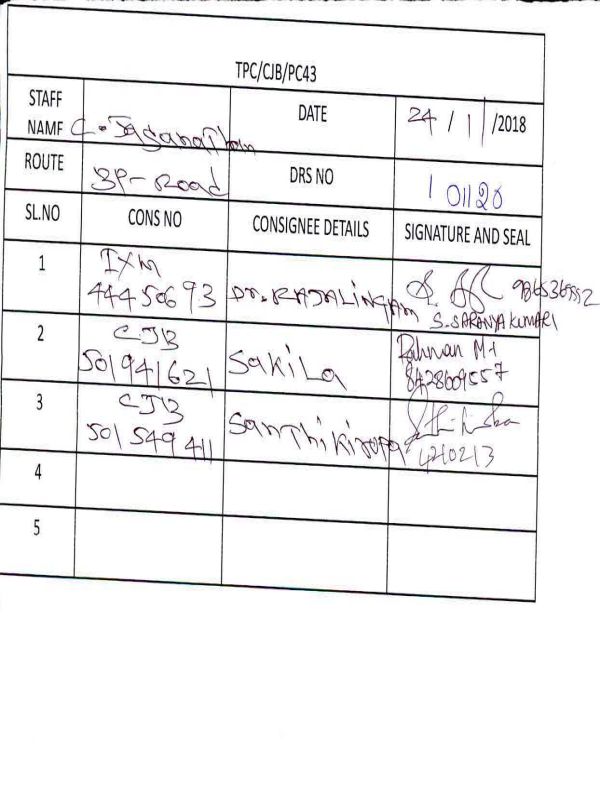 TPC/CJB/PC43
STAFF NAME C. Jaganathan DATE 24/1/2018
ROUTE 3P-Road DRS NO 101120
SL.NO CONS NO CONSIGNEE DETAILS SIGNATURE AND SEAL
1 IXM 44450693 Dr. RAJALINGAM 9865369552
S. SARANYA KUMARI
2 CJB 501941621 Sakila Rahman M
8428609557
3 CJB 501549411
4210213
4
5